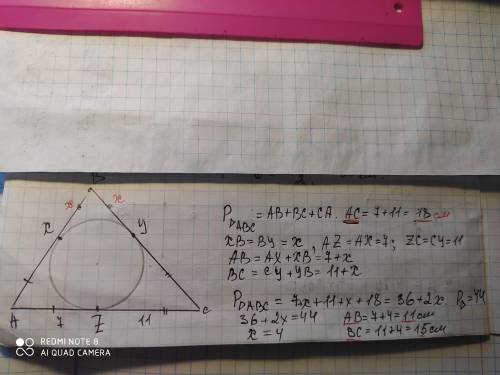 B
x x
P△ABC = AB+BC+CA. AC = 7+11 = 18 см
XB=BY = x, AZ = AX=7; ZC=CY=11
X y
AB = AX + XB = 7+x
BC = CY + YB = 11+x
P△ABC = 7x+11+x+18 = 36+2x. P△=44
A 7 Z 11 C
36+2x=44 AB=7+4=11см
x=4 BC=11+4=15см
REDMI NOTE 8
AI QUAD CAMERA